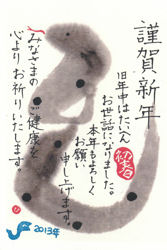 謹賀新年
旧年中はたいへん
お世話になりました。
本年もよろしく
お願い
申し上げます。
みなさまの
ご健康を
心よりお祈りいたします。
2013年